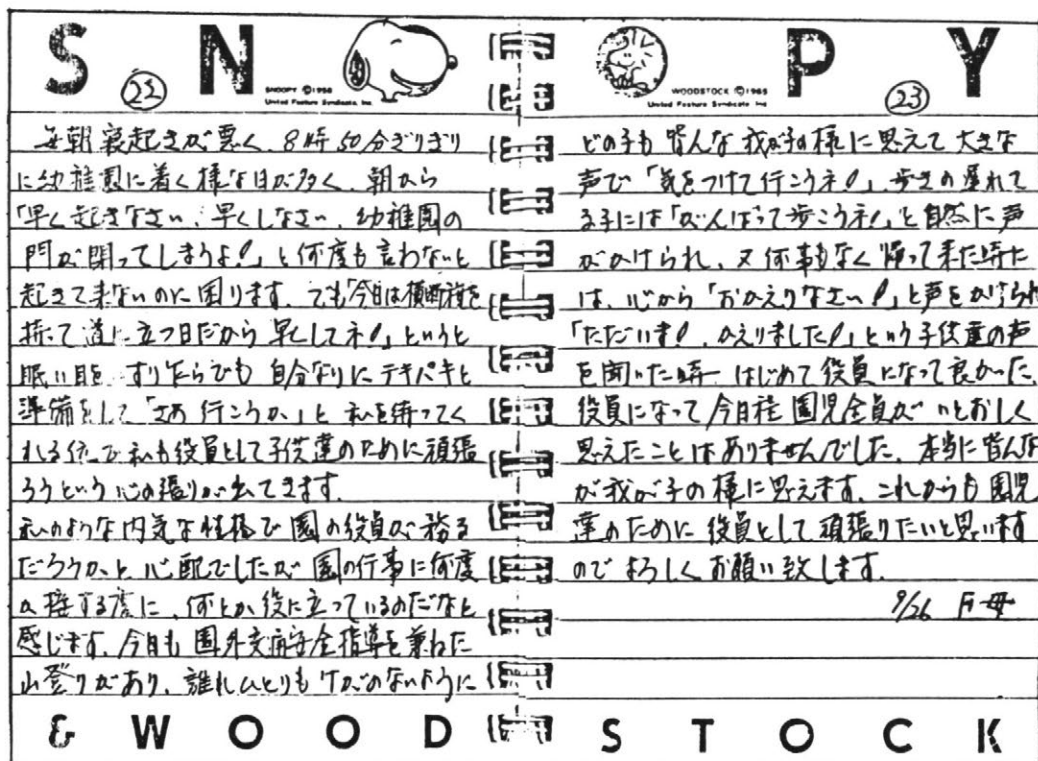 S N
22
SNOOPY ©1958
United Feature Syndicate, Inc.
毎朝寝起きが悪く、8時50分ぎりぎり
に幼稚園に着く様な日が多く、朝から
「早く起きなさい、早くしなさい、幼稚園の
門が閉ってしまうよ!」と何度も言わないと
起きて来ないのに困ります。でも「今日は横断旗を
持って道に立つ日だから早くしてネ!」というと
眠い目を すりながらでも 自分なりにテキパキと
準備をして「さあ 行こうか」と 私を待ってく
れる位で私も役員として子供達のために頑張
ろうという心の張りが出てきます。
私のような内気な性格で 園の役員が務る
だろうか、と心配でしたが 園の行事に何度
か接する度に、何とか役に立っているのだなと
感じます。今日も 園外交通安全指導を兼ねた
山登りがあり、誰れひとりもケガのないように
& W O O D
P Y
23
WOODSTOCK ©1965
United Feature Syndicate, Inc.
どの子も皆んな我が子の様に思えて大きな
声で「気をつけて行こうネ!」、歩きの遅れて
る子には「がんばって歩こうネ!」と自然に声
がかけられ、又何事もなく帰って来た時に
は、心から「おかえりなさい!」と声をかけられ
「ただいま!、かえりました!」という子供達の声
を聞いた時 はじめて役員になって良かった、
役員になって今日程 園児全員が いとおしく
思えたことはありませんでした。本当に皆んな
が我が子の様に思えます。これからも園児
達のために役員として頑張りたいと思います
のでよろしくお願い致します。
9/26 母
S T O C K